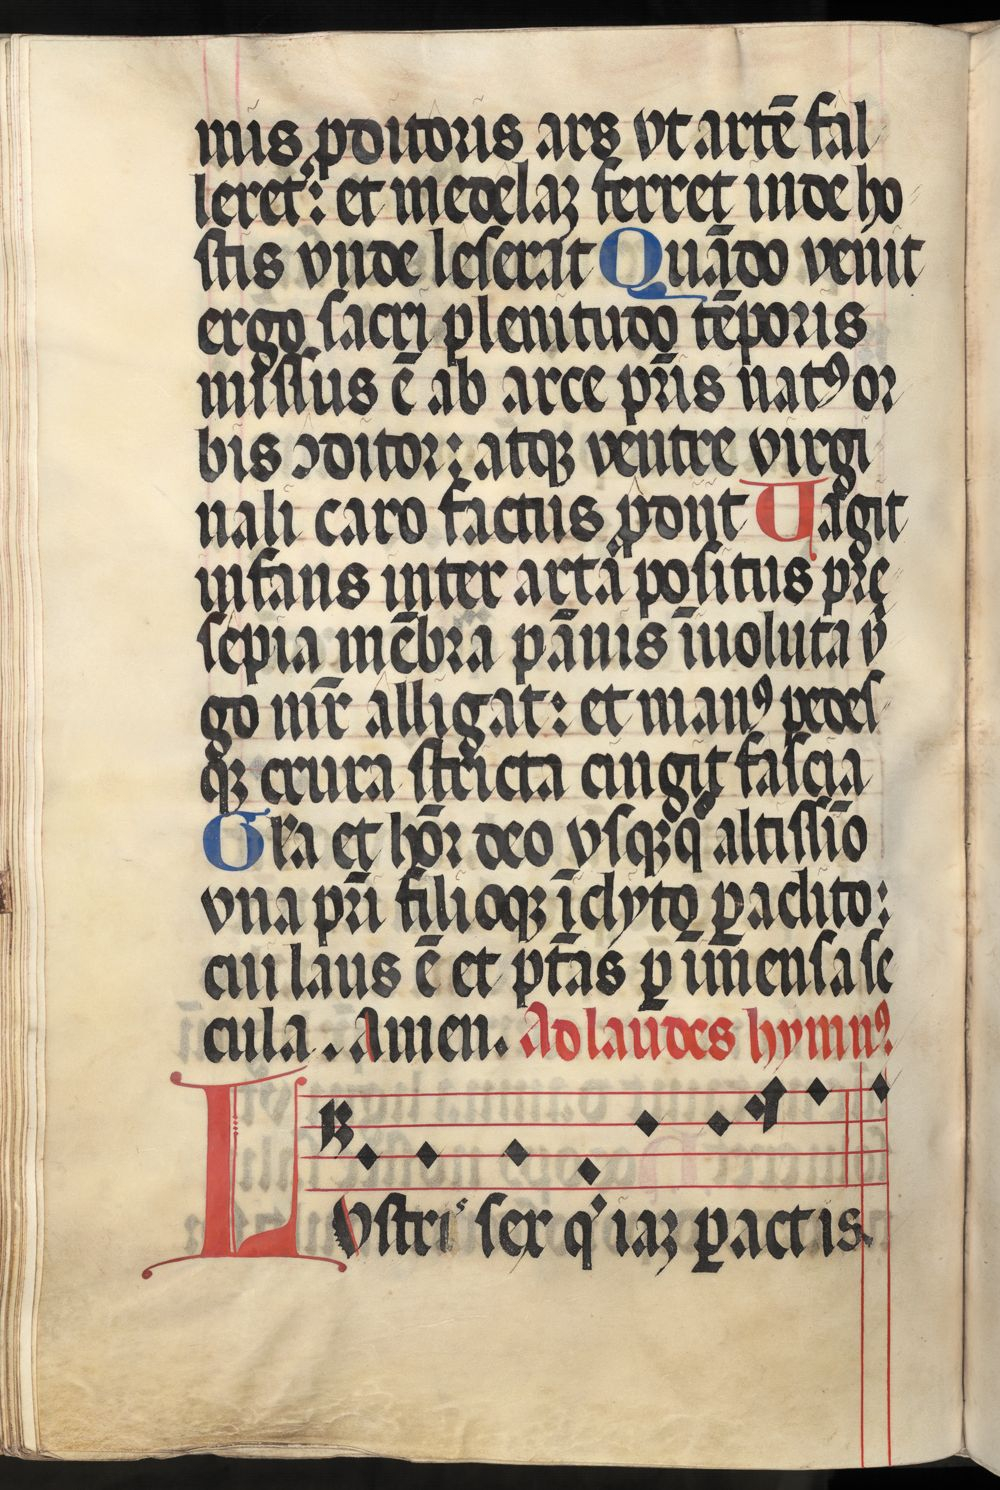 mis ꝓditoris ars vt artē fal
leret: et medelaꝫ ferret inde ho
stis vnde leserat Quādo venit
ergo sacri plenitudo tēporis
missus ē ab arce pr̄is natꝰ or
bis ↄditor: atqꝫ ventre virgi
nali caro factus ꝓdijt Uagit
infans inter arta positus pre
sepia mēbra pānis īuoluta v̄
go mr̄ alligat: et manꝰ pedes
qꝫ crura stricta cingit fascia
Glr̄a et ho᷒r deo vsqꝫq᷒ altissīo
vna pr̄i filioqꝫ īclyto ꝑaclito:
cui laus ē et pt̄as ꝑ īmensa se
cula. Amen. Ad laudes hymnꝰ.
Lvstris sex q' iaꝫ ꝑactis